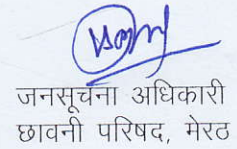 जनसूचना अधिकारी
छावनी परिषद, मेरठ